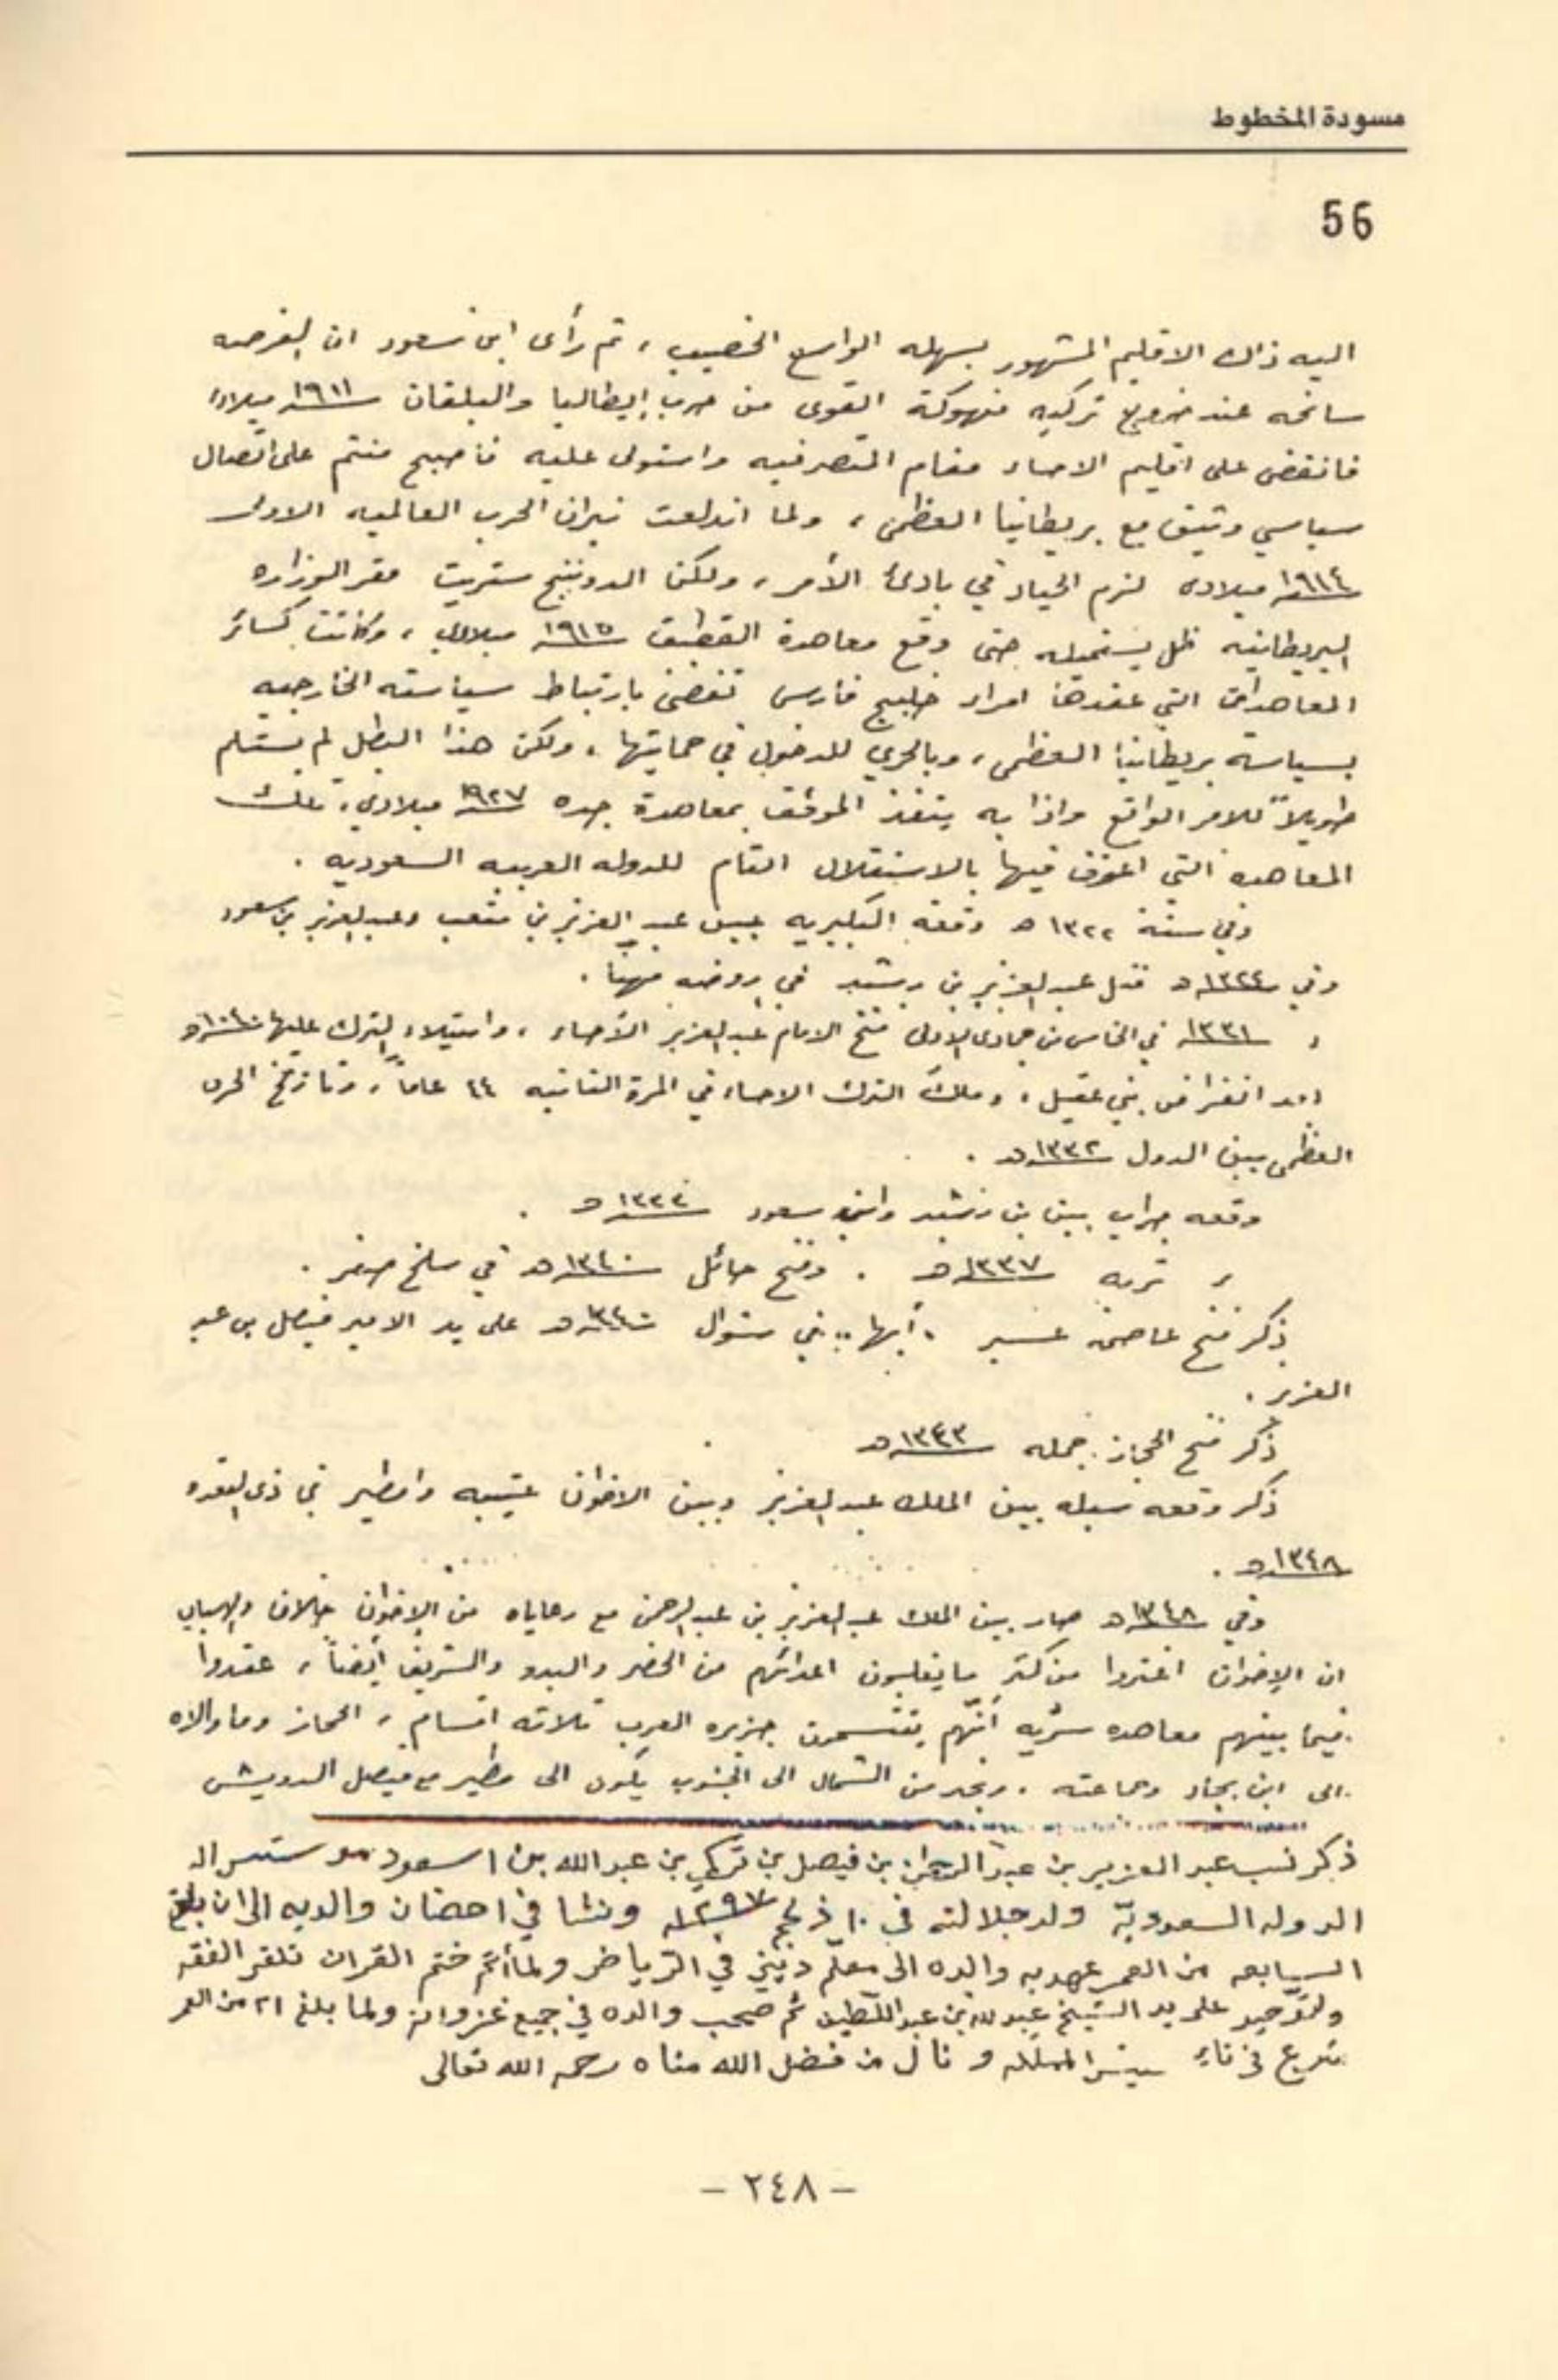 مسودة المخطوط
56
اليه ذاك الاقليم المشهور بسهله الواسع الخصيب ، ثم رأى ابن سعود ان الفرصه
سانحه عند خروج تركيه منهوكة القوى من حرب إيطاليا والبلقان ١٩١١ ميلادى
فانقض على اقليم الاحساء مقام المتصرفيه واستولى عليه فأصبح منتم على اتصال
سياسي وثيق مع بريطانيا العظمى ، ولما اندلعت نيران الحرب العالميه الاولى
١٩١٤ ميلادى لزم الحياد في بادئ الأمر ، ولكن الدوننج ستريت مقر الوزاره
البريطانيه ظل يستميله حتى وقع معاهدة القطيف ١٩١٥ ميلادي ، وكانت كسائر
المعاهدات التي عقدها امراء خليج فارس تقضي بارتباط سياسته الخارجيه
بسياسة بريطانيا العظمى ، وبالحري للدخول في حمايتها ، ولكن هذا البطل لم يستسلم
طويلاً للامر الواقع واذا به ينقذ الموقف بمعاهدة جده ١٩٢٧ ميلادي ، تلك
المعاهده التي اعترف فيها بالاستقلال التام للدوله العربيه السعوديه .
وفي سنة ١٣٢٢ هـ وقعة البكيريه بين عبد العزيز بن متعب وعبد العزيز بن سعود
وفي ١٣٢٤هـ قتل عبد العزيز بن رشيد في روضه مهنا .
، ١٣٣١ في الخامس من جمادى الاولى فتح الامام عبد العزيز الأحساء ، واستيلاء الترك عليها هـ
بعد انقراض بني عقيل ، وملك الترك الاحساء في المرة الثانيه ٤٤ عاماً ، وتاريخ الحرب
العظمى بين الدول ١٣٣٢هـ .
وقعه جراب بين بن رشيد وابن سعود ١٣٣٣هـ .
ر تربه ١٣٣٧هـ . وفتح حائل ١٣٤٠هـ في سلخ صفر .
ذكر فتح عاصمة عسير "أبها" في شوال ١٣٤٠هـ على يد الامير فيصل بن عبد
العزيز .
ذكر فتح الحجاز جمله ١٣٤٣هـ
ذكر وقعه سبله بين الملك عبد العزيز وبين الاخوان عتيبه وامطير في ذى القعده
١٣٤٨هـ .
وفي ١٣٤٨هـ صار بين الملك عبد العزيز بن عبد الرحمن مع رعاياه من الإخوان خلاف
ان الإخوان اغتروا من كثر ما يغلبون اعدائهم من الحضر والبدو والشريف أيضاً ، عقدوا
فيما بينهم معاهده سريه أنّهم يقتسمون جزيره العرب ثلاثه اقسام ، الحجاز وما والاه
الى ابن بجاد وجماعته ، ونجد من الشمال الى الجنوب يكون الى مطير مع فيصل الدويش
ذكر نسب عبد العزيز بن عبد الرحمن بن فيصل بن تركي بن عبد الله بن اسعود موسس
الدوله السعوديّة ولد جلالته في ١٠ ذ لحج ١٢٩٧ ونشا في احضان والديه الى ان بلغ
السابعه من العمر عهد به والده الى معلّم ديني في الرياض ولما أتم ختم القران تلقى الفقه
والتوحيد على يد الشيخ عبد الله بن عبد اللّطيف ثم صحب والده في جميع غزواته ولما بلغ ٢١ من العمر
شرع في المملكه ونال من فضل الله مناه رحمه الله تعالى
– ٢٤٨ –